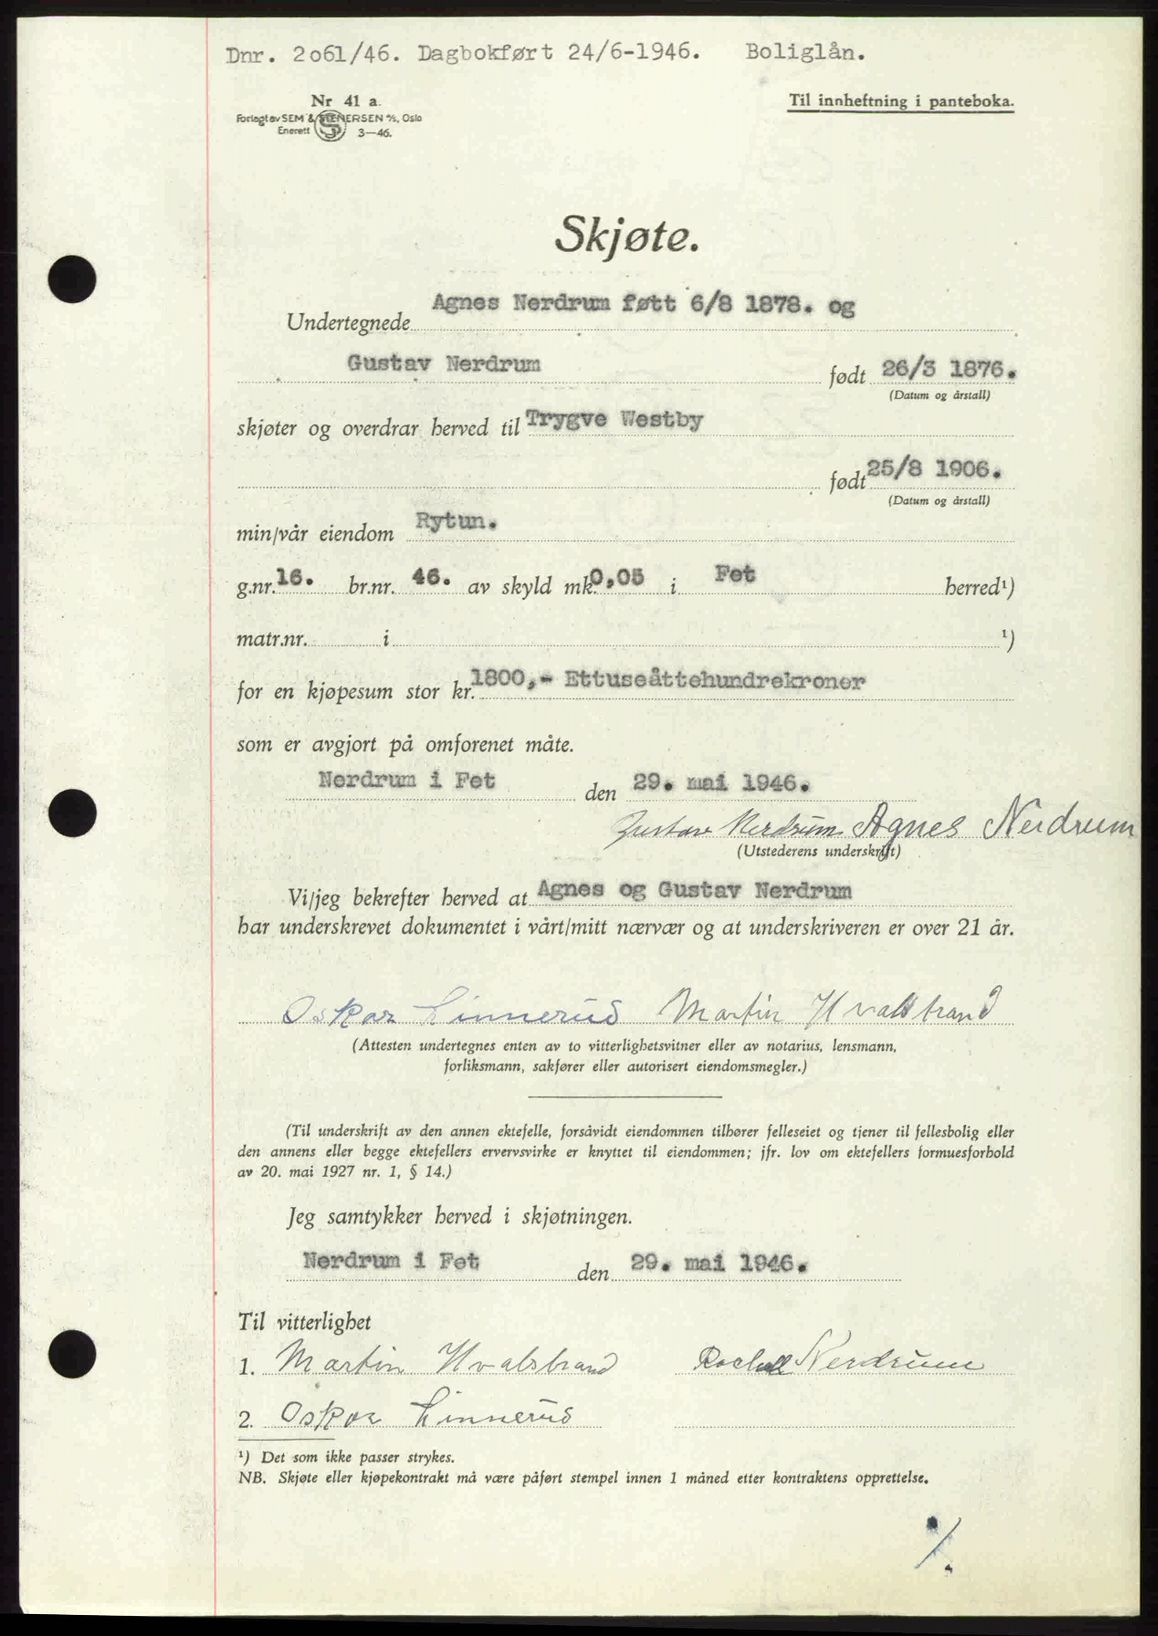 Dnr. 2o61/46. Dagbokført 24/6-1946. Boliglån.
Nr 41 a.
Til innheftning i panteboka.
Forlagt av SEM & STENERSEN A/S, Oslo
Enerett 3—46.
Skjøte.
Undertegnede Agnes Nerdrum føtt 6/8 1878. og
Gustav Nerdrum født 26/3 1876.
(Datum og årstall)
skjøter og overdrar herved til Trygve Westby
født 25/8 1906.
(Datum og årstall)
min/vår eiendom Rytun.
g.nr. 16. br.nr. 46. av skyld mk. 0,05 i Fet herred¹)
matr.nr. i ¹)
for en kjøpesum stor kr. 1800,- Ettuseåttehundrekroner
som er avgjort på omforenet måte.
Nerdrum i Fet den 29. mai 1946.
Gustav Nerdrum Agnes Nerdrum
(Utstederens underskrift)
Vi/jeg bekrefter herved at Agnes og Gustav Nerdrum
har underskrevet dokumentet i vårt/mitt nærvær og at underskriveren er over 21 år.
Oskar Linnerud Martin Hvalstrand
(Attesten undertegnes enten av to vitterlighetsvitner eller av notarius, lensmann,
forliksmann, sakfører eller autorisert eiendomsmegler.)
(Til underskrift av den annen ektefelle, forsåvidt eiendommen tilhører felleseiet og tjener til fellesbolig eller
den annens eller begge ektefellers ervervsvirke er knyttet til eiendommen; jfr. lov om ektefellers formuesforhold
av 20. mai 1927 nr. 1, § 14.)
Jeg samtykker herved i skjøtningen.
Nerdrum i Fet den 29. mai 1946.
Til vitterlighet
1. Martin Hvalstrand Nerdrum
2. Oskar Linnerud
¹) Det som ikke passer strykes.
NB. Skjøte eller kjøpekontrakt må være påført stempel innen 1 måned etter kontraktens opprettelse.